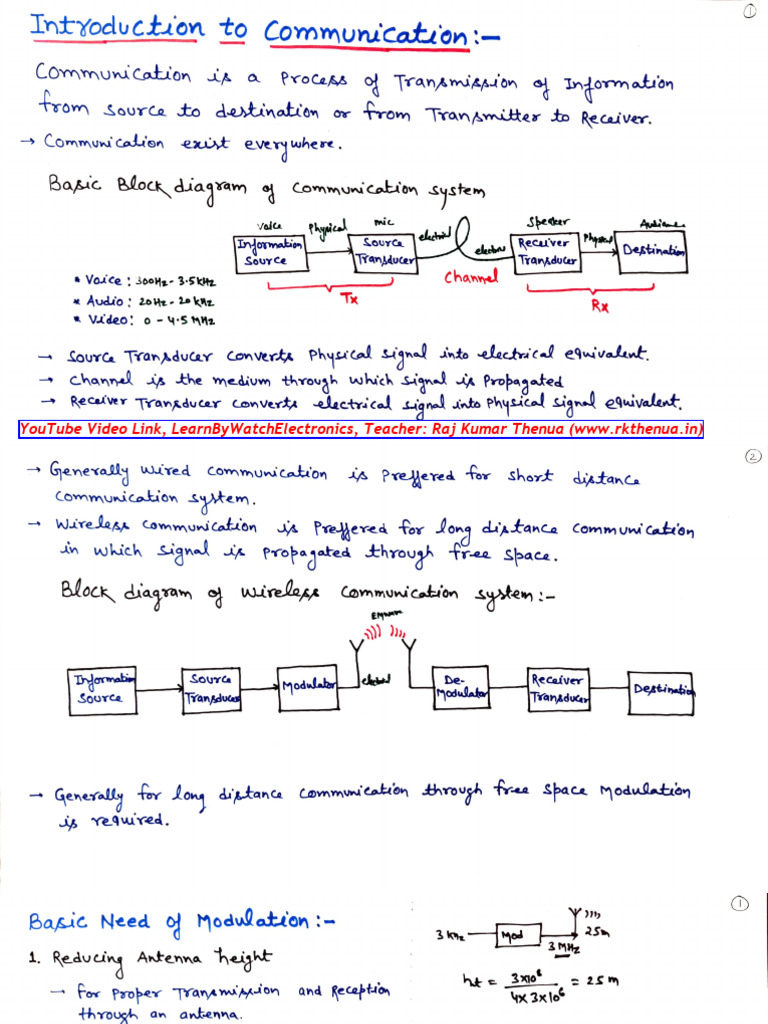 ①
Introduction to Communication:-
Communication is a Process of Transmission of Information
from source to destination or from Transmitter to Receiver.
→ Communication exist everywhere.
Basic Block diagram of communication system
Voice Physical mic electrical Speaker Physical Audience
Information Source
Source Transducer
electrical
Receiver Transducer
Destination
Channel
Tx
Rx
* Voice : 300Hz - 3.5kHz
* Audio : 20Hz - 20kHz
* Video : 0 - 4.5MHz
→ Source Transducer converts Physical signal into electrical equivalent.
→ Channel is the medium through which signal is Propagated
→ Receiver Transducer converts electrical signal into Physical signal equivalent.
YouTube Video Link, LearnByWatchElectronics, Teacher: Raj Kumar Thenua (www.rkthenua.in)
②
→ Generally wired communication is preffered for short distance
communication system.
→ Wireless communication is preffered for long distance communication
in which signal is propagated through free space.
Block diagram of wireless communication system:-
EMwave
Information Source
Source Transducer
Modulator
electrical
De-Modulator
Receiver Transducer
Destination
→ Generally for long distance communication through free space Modulation
is required.
①
Basic Need of Modulation:-
1. Reducing Antenna height
→ for Proper Transmission and Reception
through an antenna.
3 kHz Mod 3 MHz 25m
ht = 3x10⁸ / 4x3x10⁶ = 25m